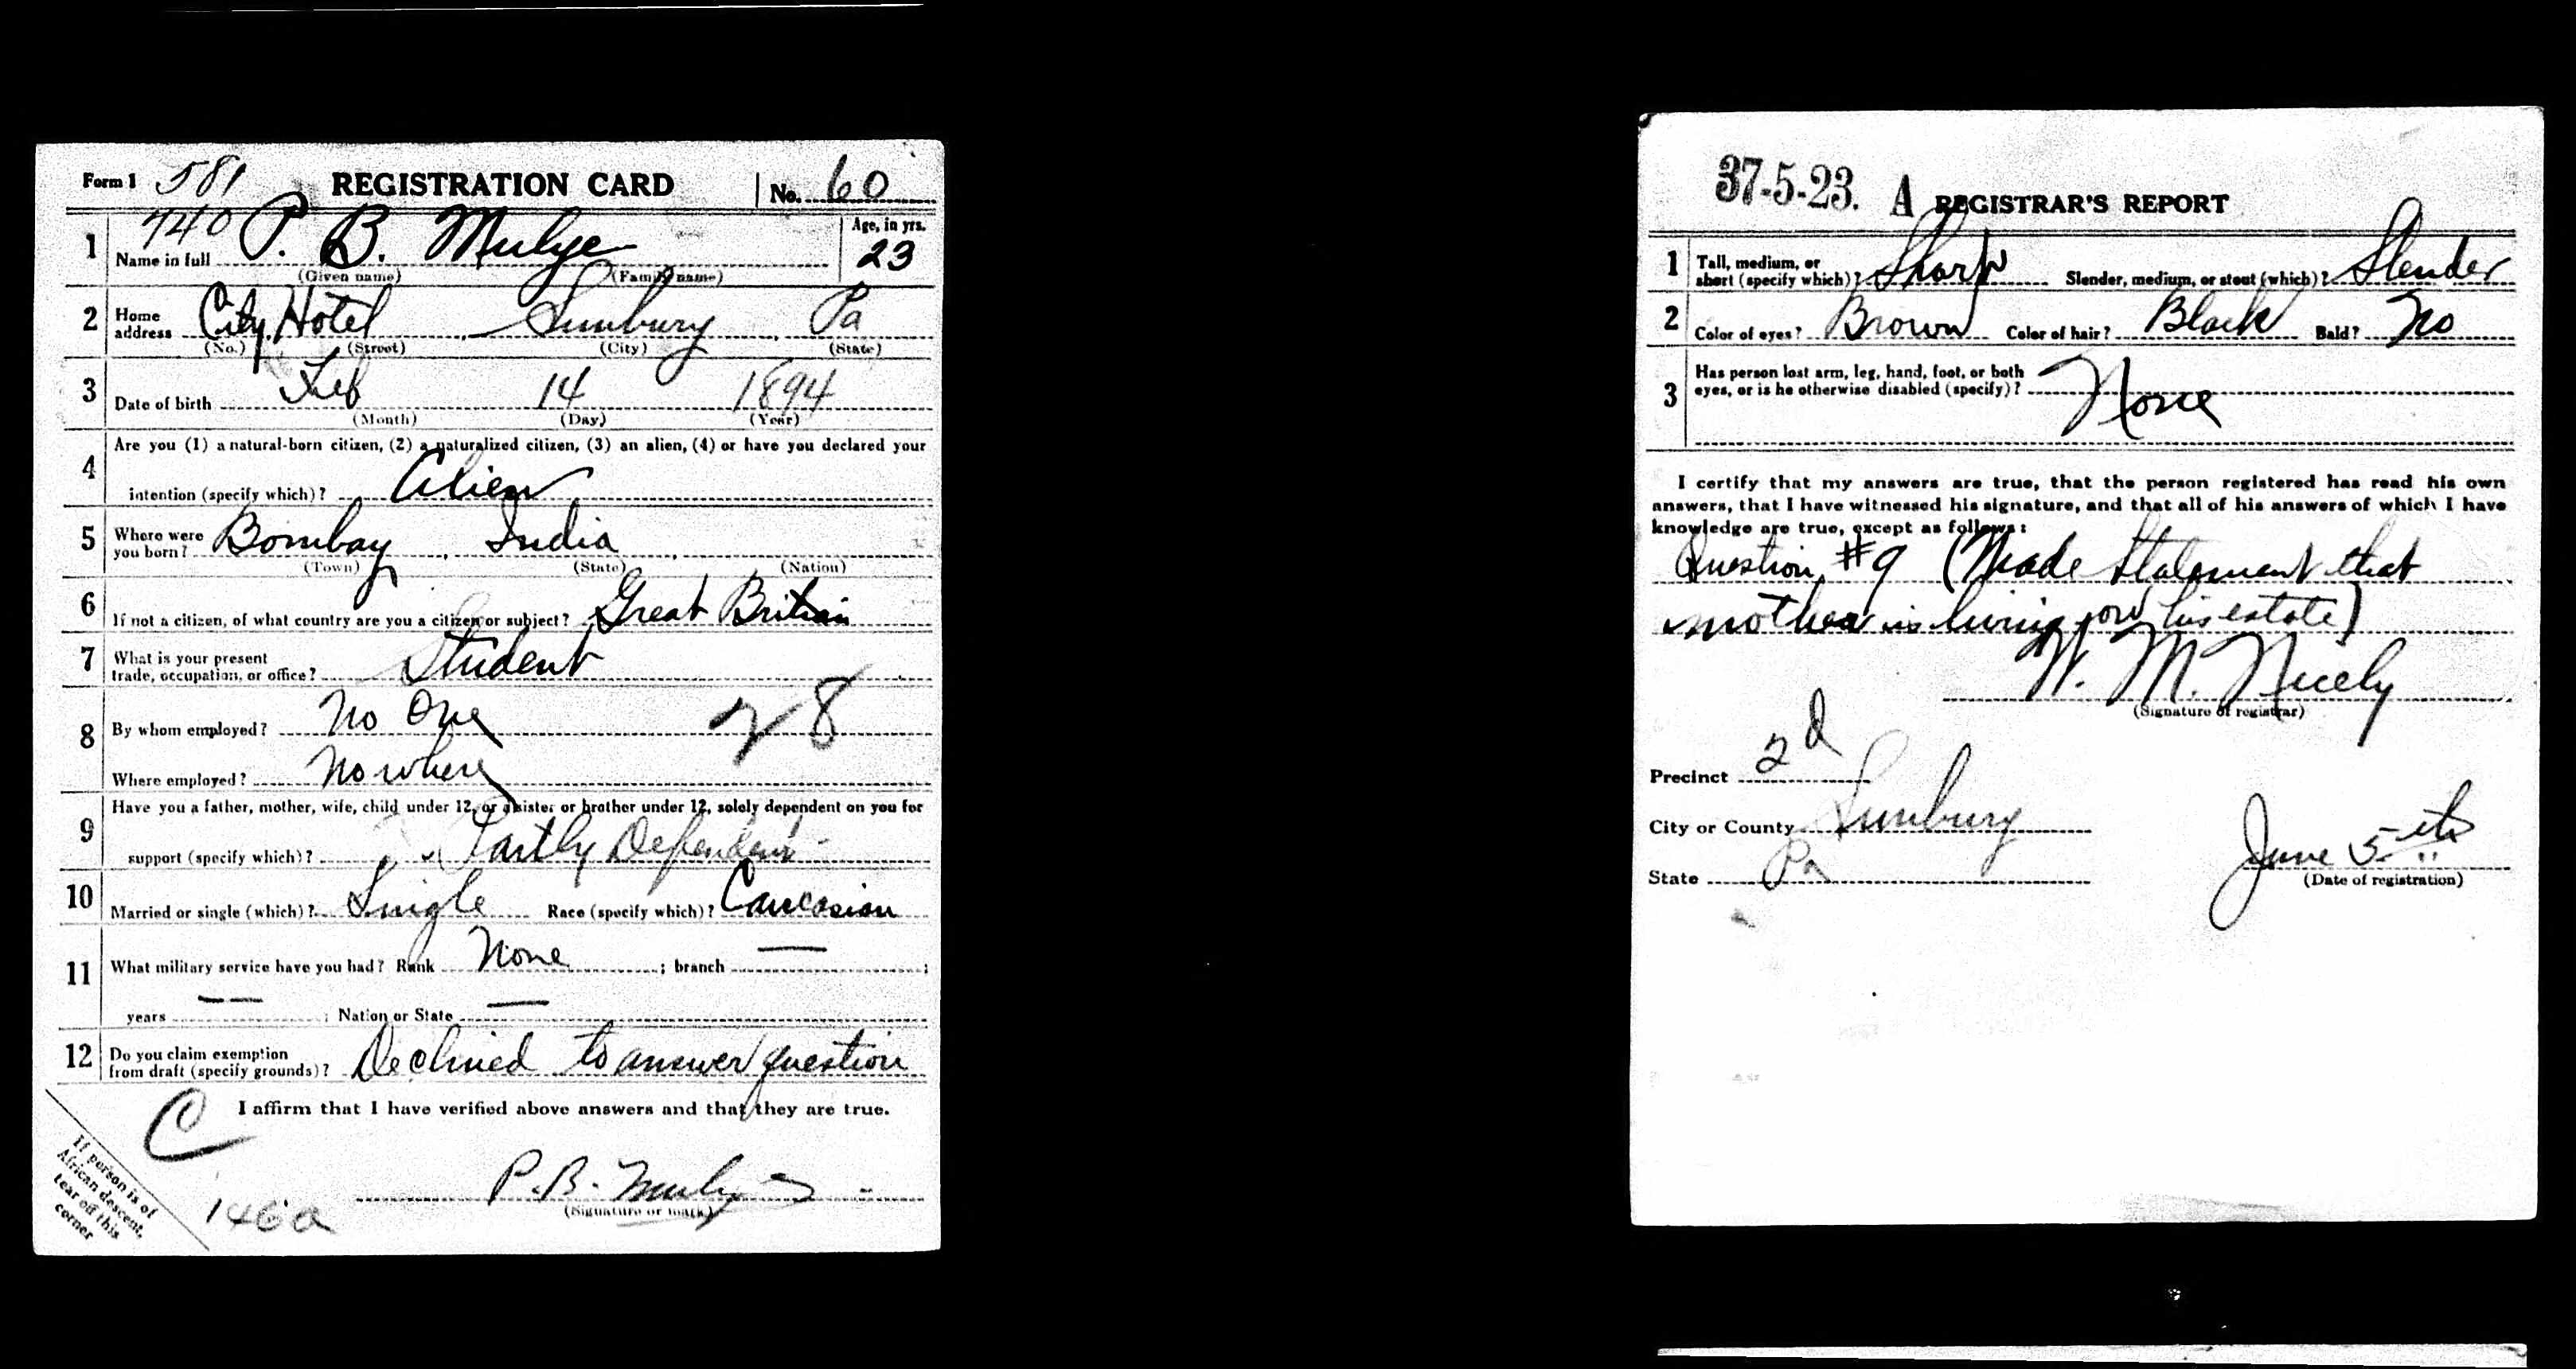 Form 1 581 REGISTRATION CARD No. 60
740
1 Name in full P. B. Mulye Age, in yrs. 23
(Given name) (Family name)
2 Home address City Hotel, Sunbury, Pa
(No.) (Street) (City) (State)
3 Date of birth Feb 14 1894
(Month) (Day) (Year)
4 Are you (1) a natural-born citizen, (2) a naturalized citizen, (3) an alien, (4) or have you declared your
intention (specify which)? Alien
5 Where were you born? Bombay, India,
(Town) (State) (Nation)
6 If not a citizen, of what country are you a citizen or subject? Great Britian
7 What is your present trade, occupation, or office? Student
8 By whom employed? No One 28
Where employed? No where
9 Have you a father, mother, wife, child under 12, or a sister or brother under 12, solely dependent on you for
support (specify which)? Partly Dependent
10 Married or single (which)? Single Race (specify which)? Caucasian
11 What military service have you had? Rank None ; branch — ;
years — ; Nation or State —
12 Do you claim exemption from draft (specify grounds)? Declined to answer question
I affirm that I have verified above answers and that they are true.
C
P. B. Mulye
(Signature or mark)
If person is of
African descent,
tear off this
corner
146a
37-5-23. A REGISTRAR'S REPORT
1 Tall, medium, or short (specify which)? Short Slender, medium, or stout (which)? Slender
2 Color of eyes? Brown Color of hair? Black Bald? No
3 Has person lost arm, leg, hand, foot, or both eyes, or is he otherwise disabled (specify)? None
I certify that my answers are true, that the person registered has read his own
answers, that I have witnessed his signature, and that all of his answers of which I have
knowledge are true, except as follows:
Question #9 (Made Statement that
mother is living on his estate)
W. M. Nicely
(Signature of registrar)
Precinct 2d
City or County Sunbury
State Pa
June 5th
(Date of registration)